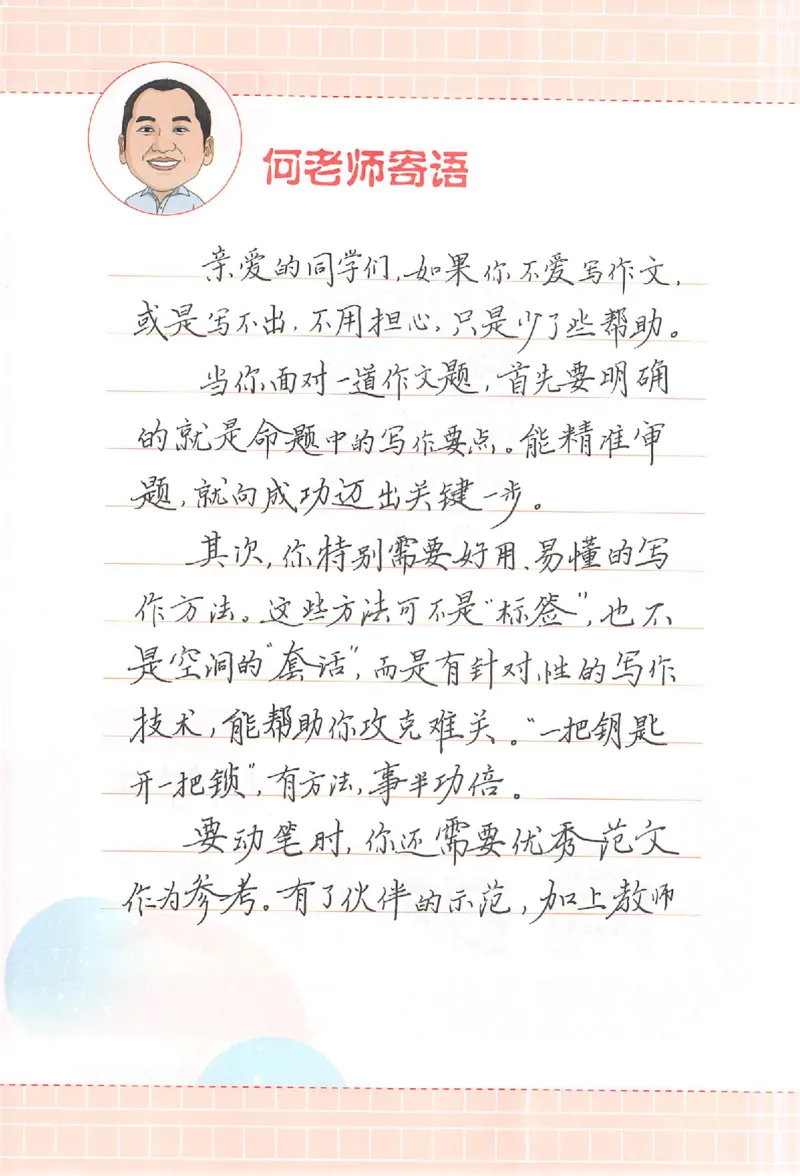 何老师寄语
亲爱的同学们,如果你不爱写作文,
或是写不出,不用担心,只是少了些帮助。
当你面对一道作文题,首先要明确
的就是命题中的写作要点。能精准审
题,就向成功迈出关键一步。
其次,你特别需要好用、易懂的写
作方法。这些方法可不是“标签”,也不
是空洞的“套话”,而是有针对性的写作
技术,能帮助你攻克难关。“一把钥匙
开一把锁”,有方法,事半功倍。
要动笔时,你还需要优秀范文
作为参考。有了伙伴的示范,加上教师